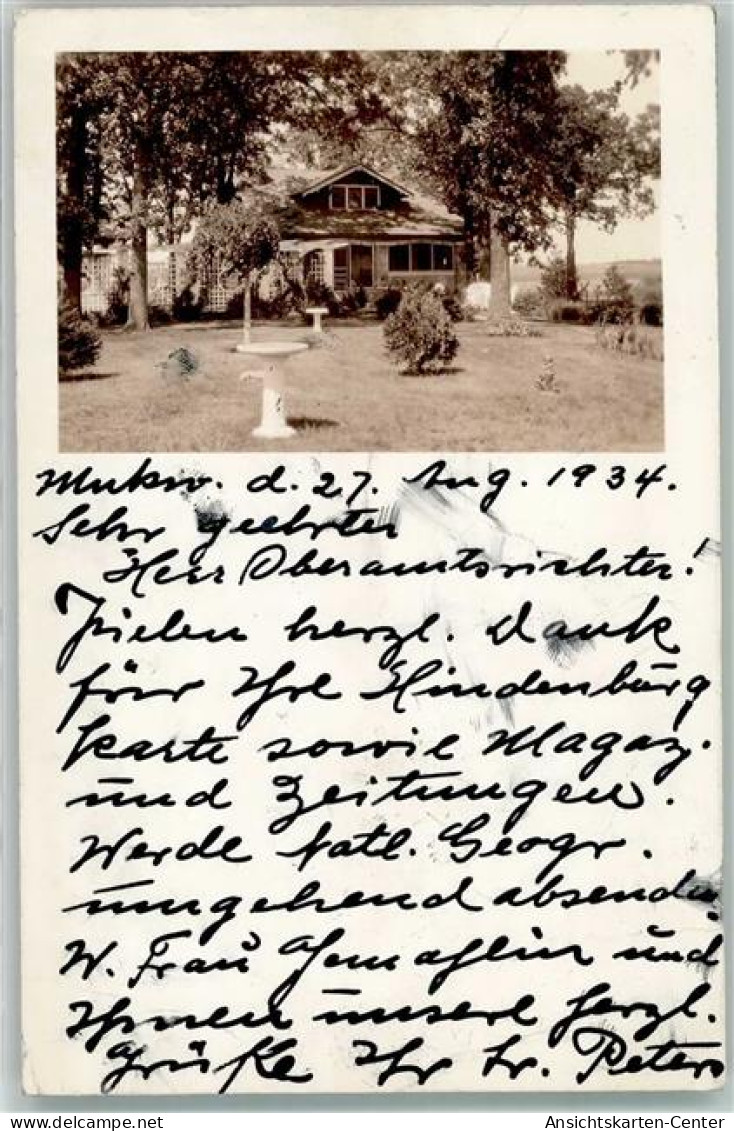 Mukw. d. 27. Aug. 1934.
Sehr geehrter
Herr Oberamtsrichter!
Vielen herzl. Dank
für Ihre Hindenburg
karte sowie Magaz.
und Zeitungen.
Werde Natl. Geogr.
umgehend absenden
W. Frau Gemahlin und
Ihnen unsere herzl.
Grüße Ihr Fr. Peters
Ansichtskarten-Center